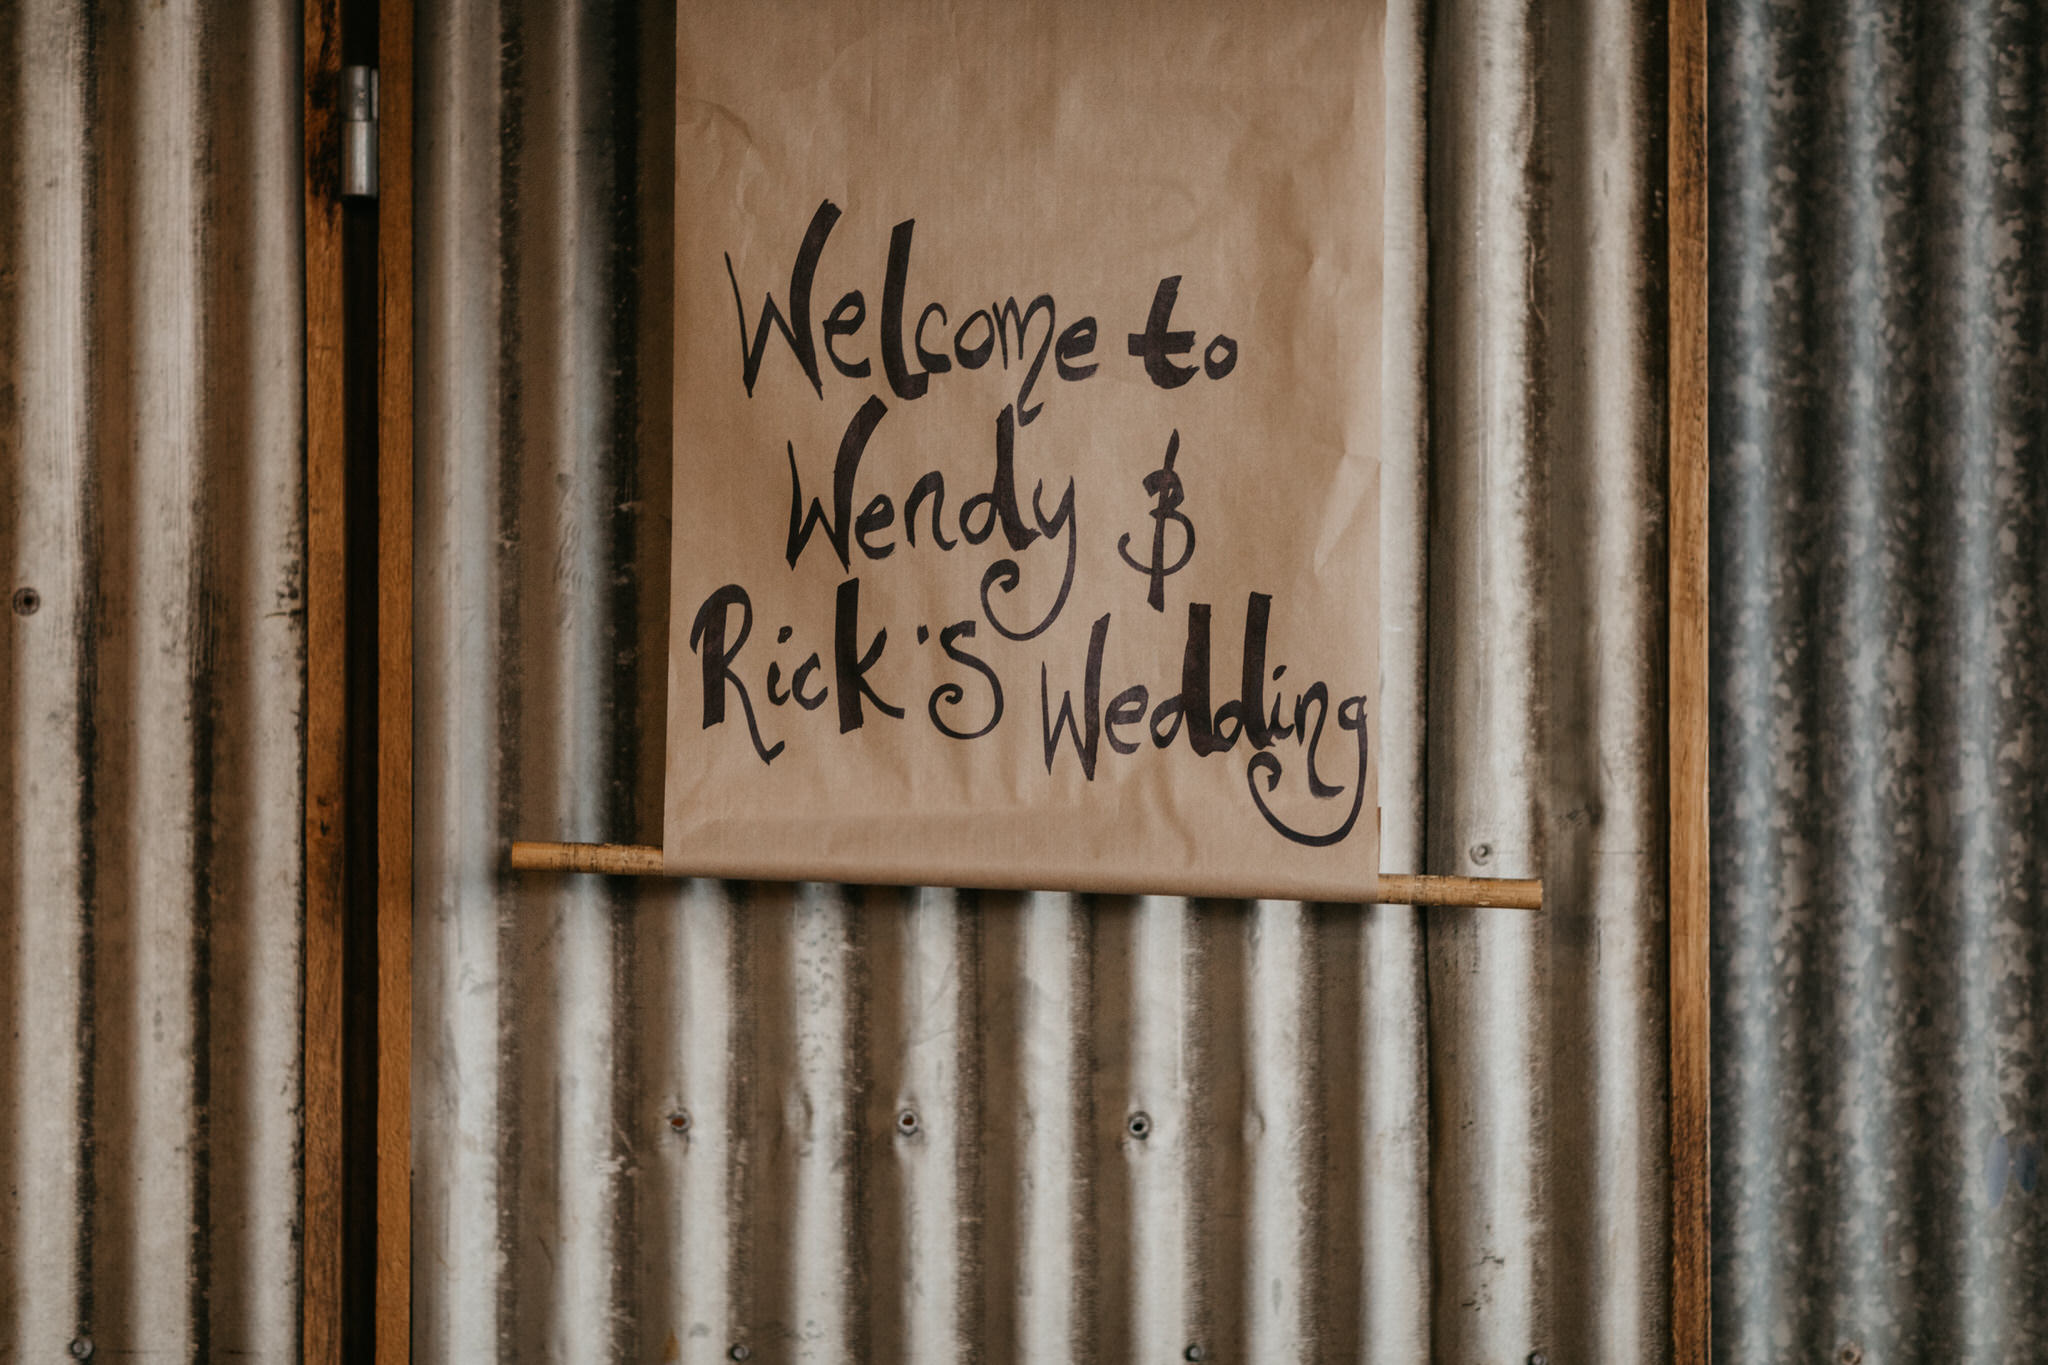 Welcome to
Wendy &
Rick's Wedding